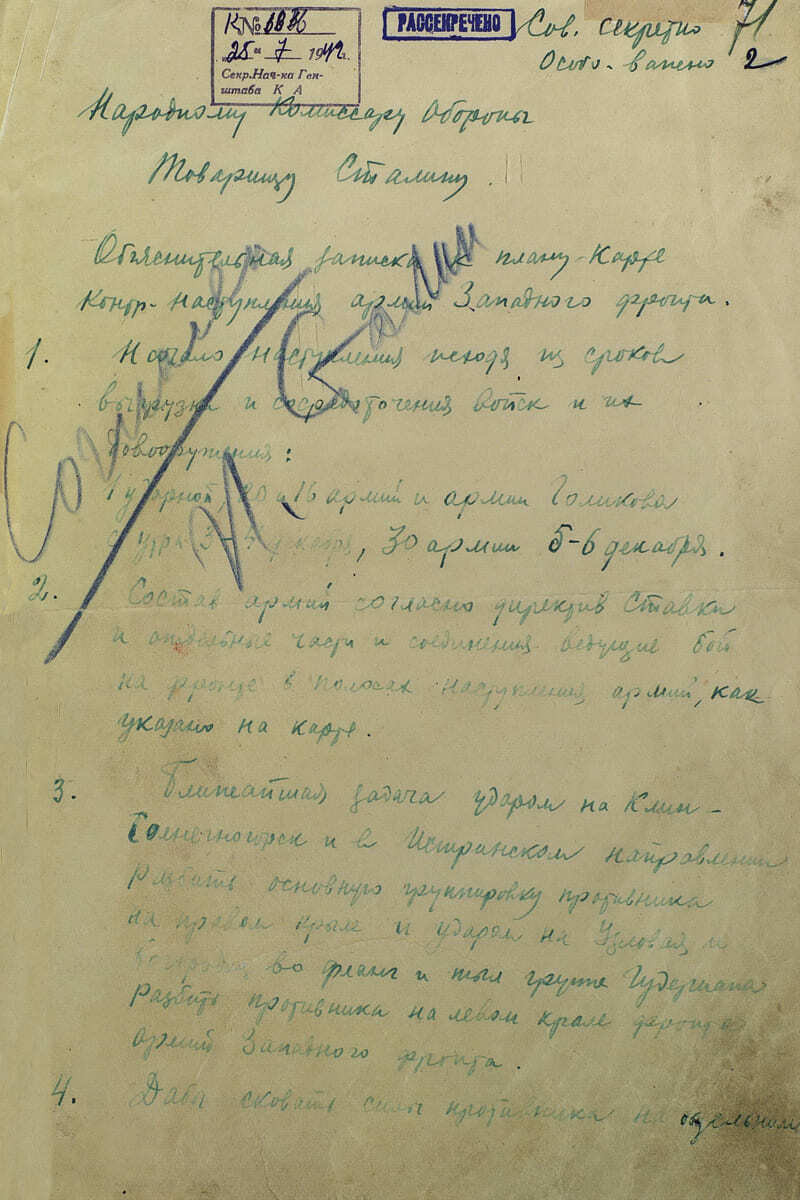 К№
"25" 7 1942г.
Секр.Нач-ка Ген-
штаба К А
РАССЕКРЕЧЕНО
Сов. секретно
71
Особо-важно 2
Народному Комиссару Обороны
Товарищу Сталину.
Объяснительная записка к плану-карте
контр-наступления армий Западного фронта.
1. Начало наступления исходя из сроков
выгрузки и сосредоточения войск и их
довооружения:
1 ударной, 20 и 16 армий и армии Голикова
с утра 3-4 декабря, 30 армии 5-6 декабря.
2. Состав армий согласно директив Ставки
и отдельные части и соединения ведущие бой
на фронте в полосах наступления армий, как
указано на карте.
3. Ближайшая задача ударом на Клин-
Солнечногорск и в Истринском направлении
разбить основную группировку противника
на правом крыле и ударом на Узловая и
во фланг и тыл группе Гудериана
разбить противника на левом крыле фронта
армий Западного фронта.
4. Дабы сковать силы противника на
Согласен
И Сталин